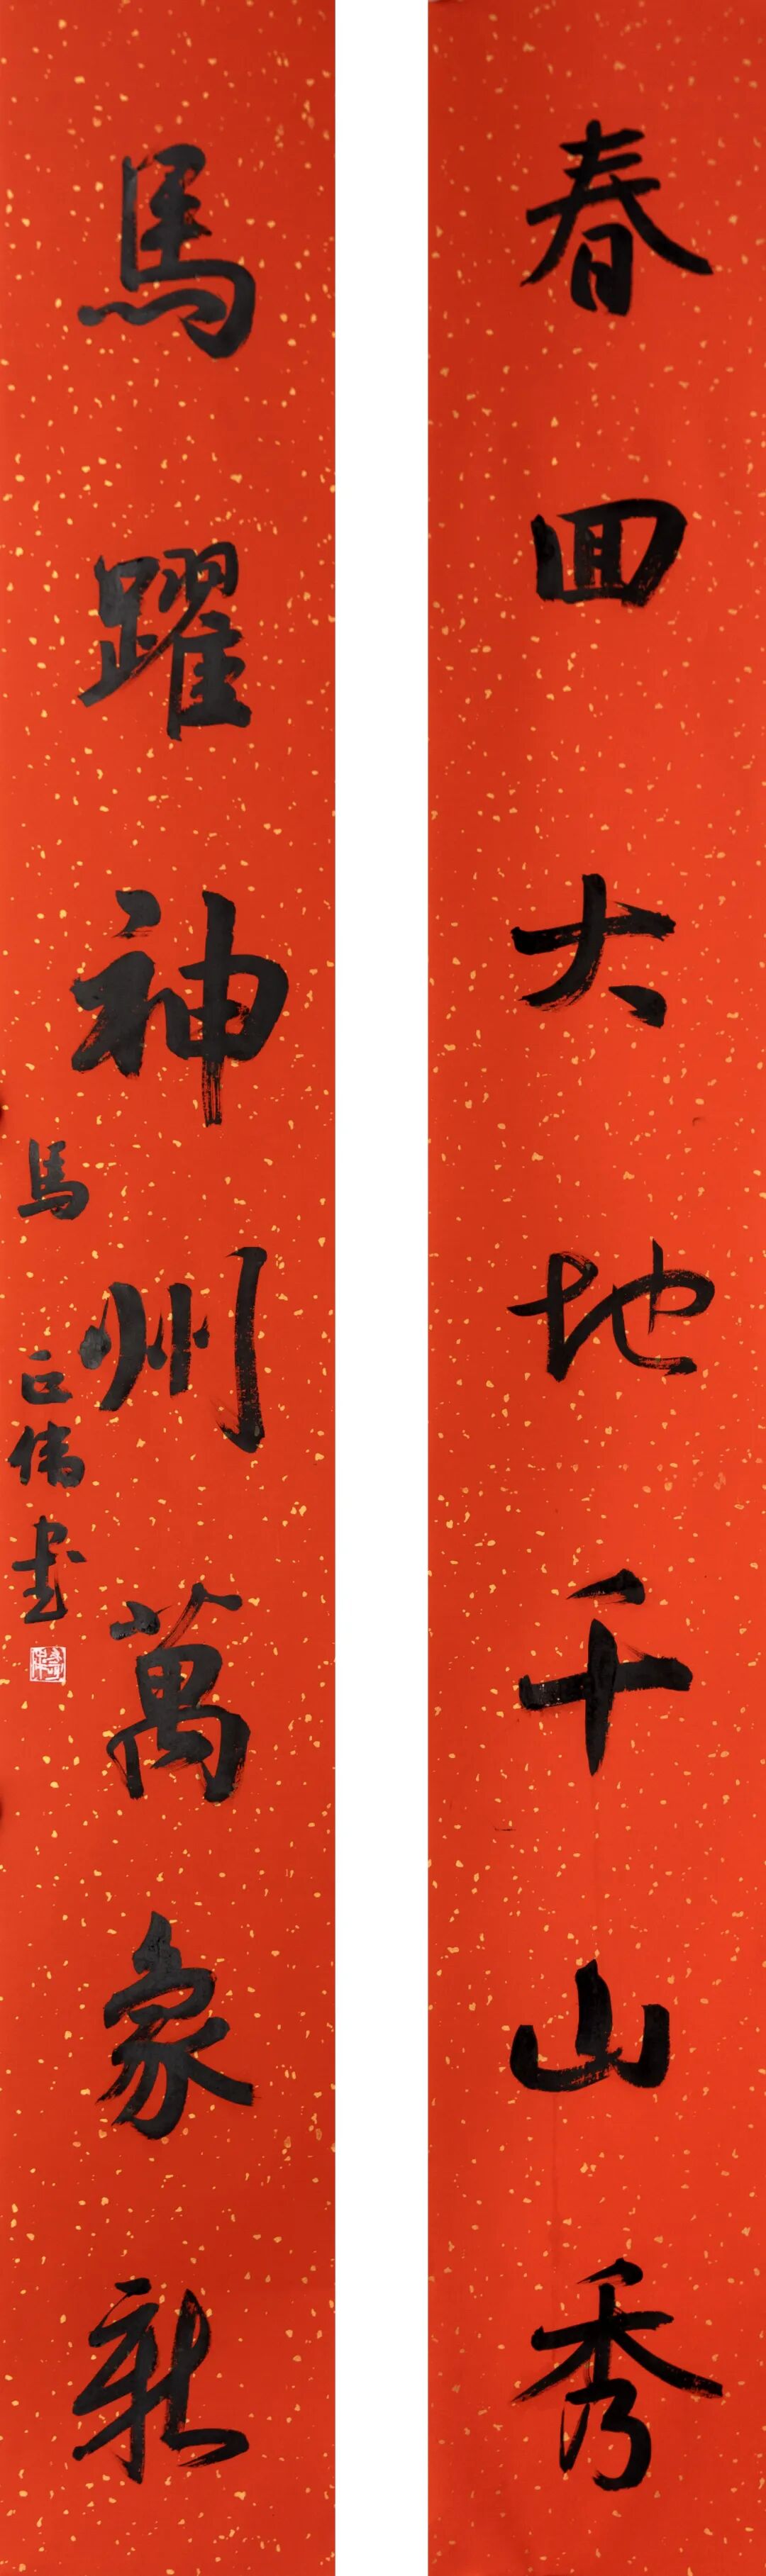 春回大地千山秀
馬躍神州萬象新
馬正偉書